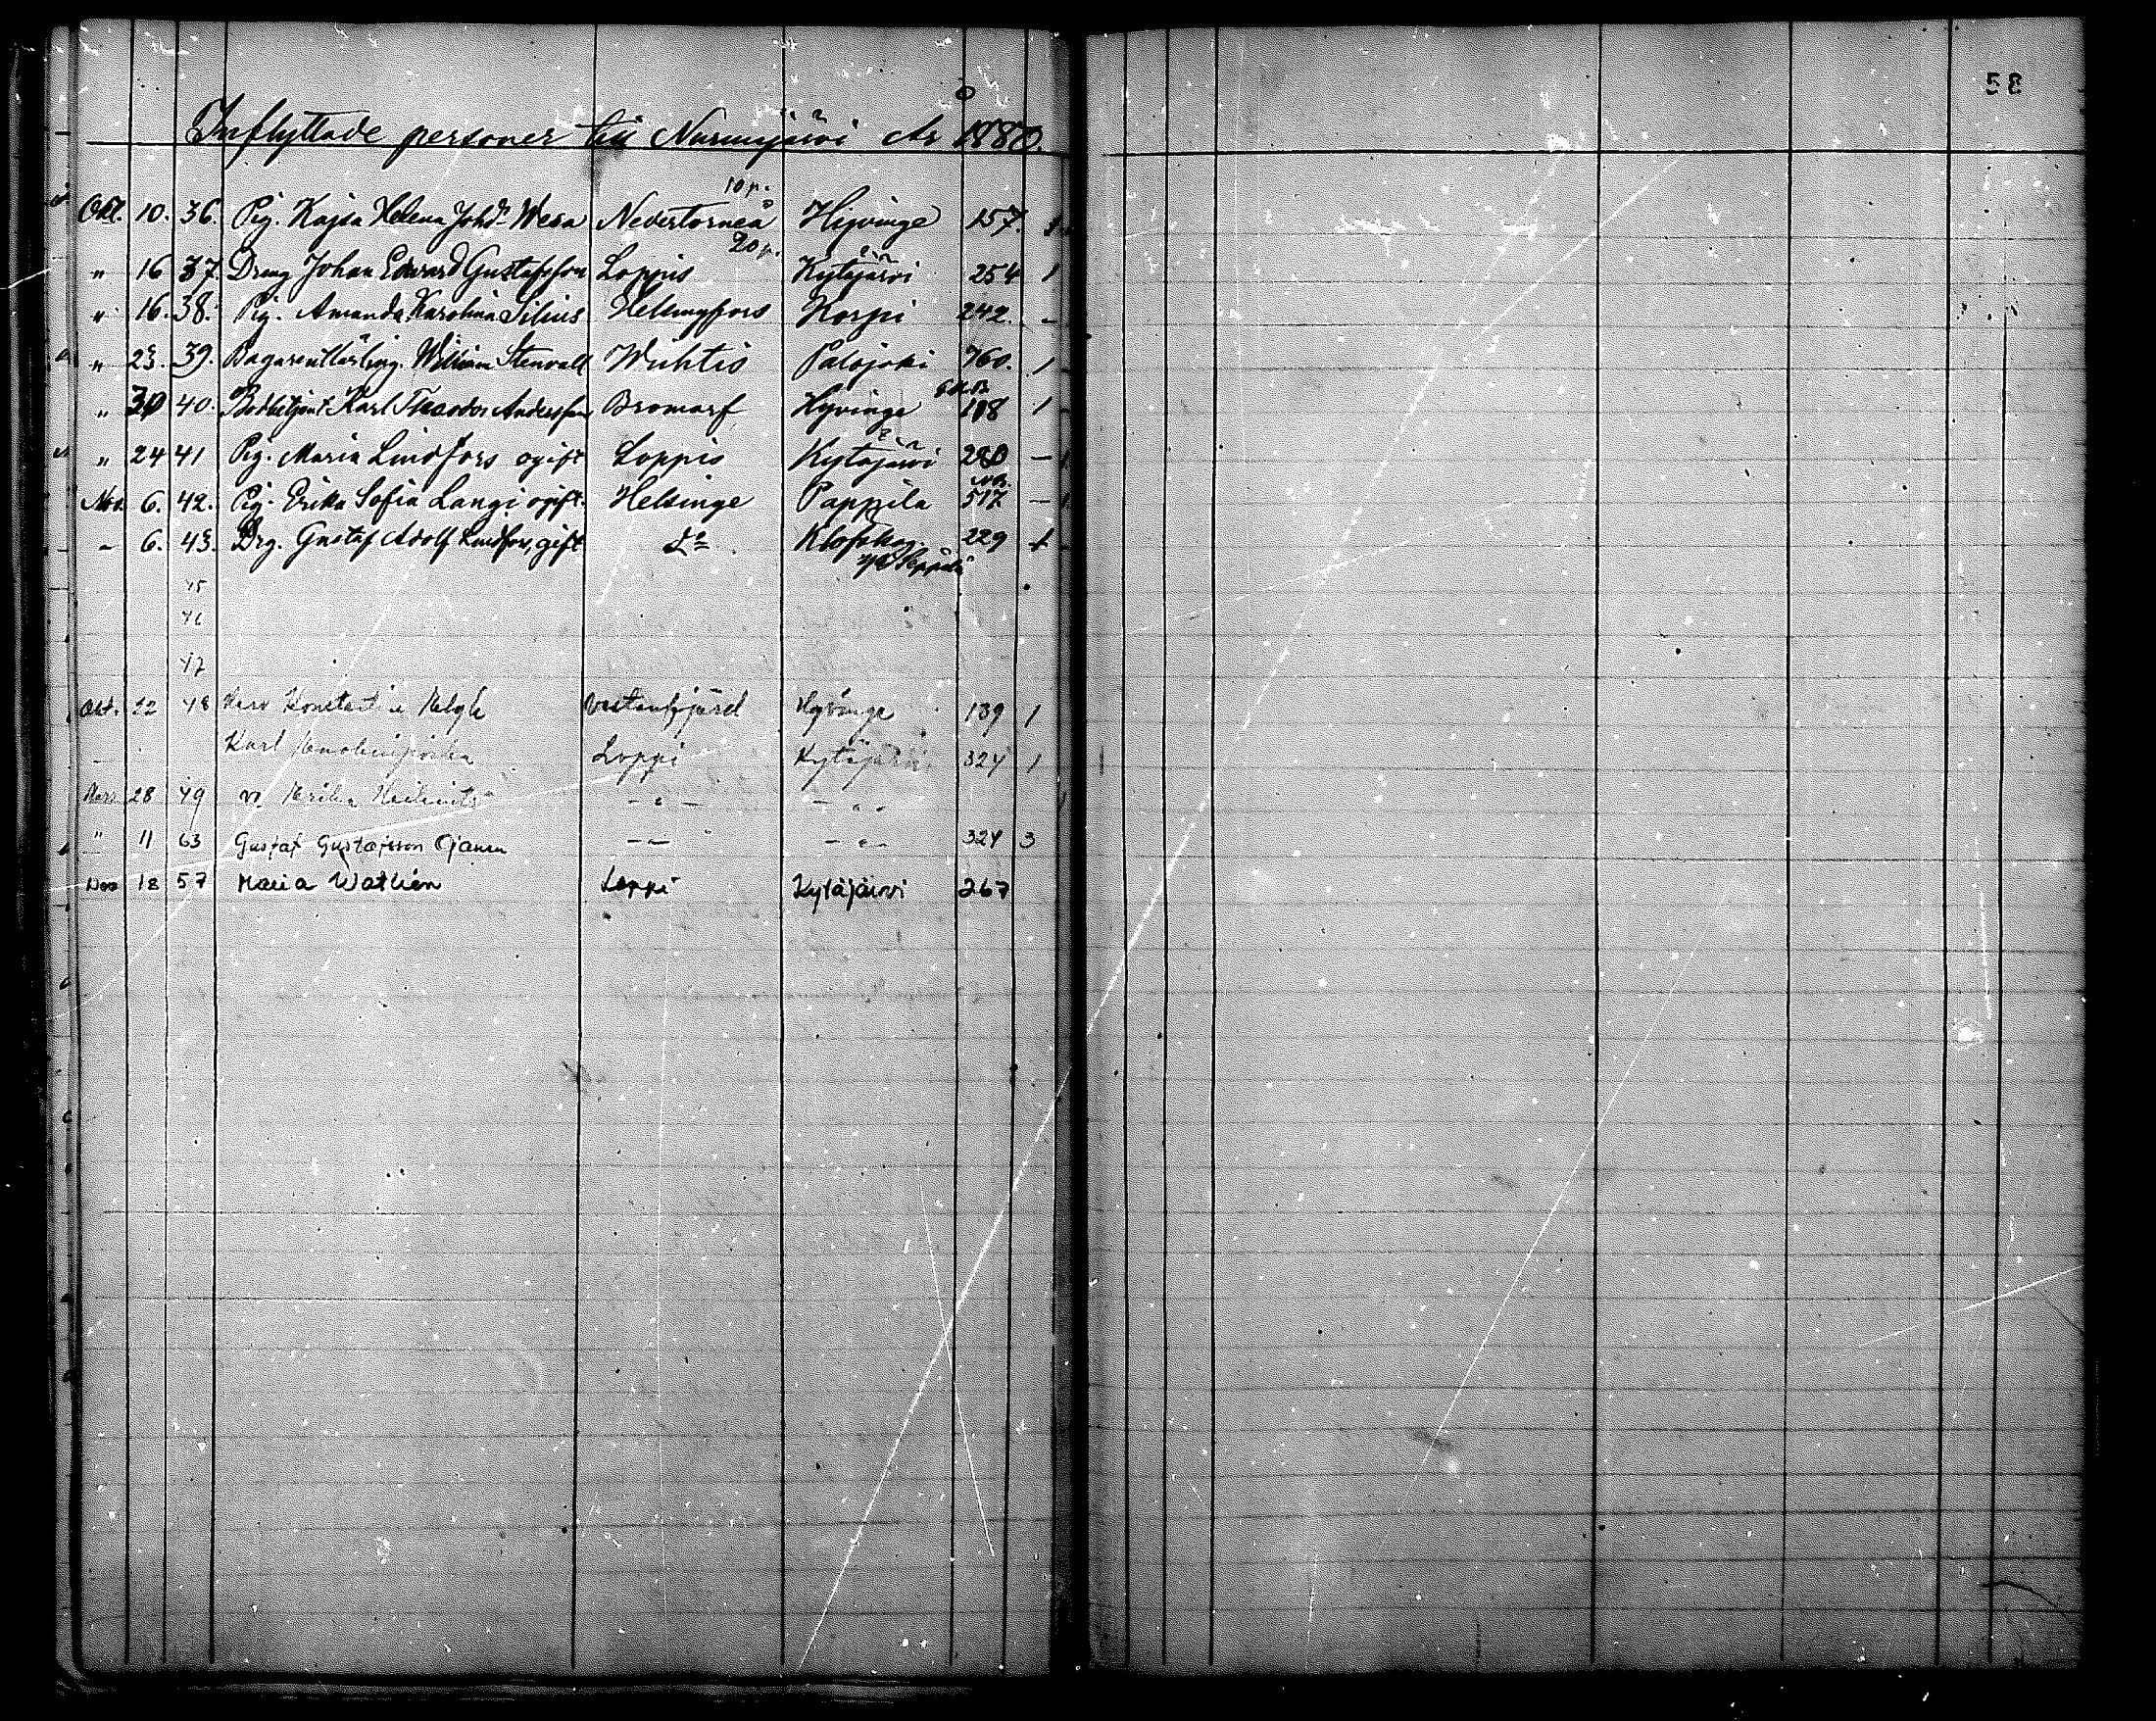 58
Inflyttade personer till Nurmijärvi År 1880.
10 p.
Okt. 10. 36. Pig. Kajsa Helena Johdr Wesa Nedertorneå Hyvinge 157. 1
20 p.
" 16 37. Dreng Johan Edvard Gustafsson Loppis Kytäjärvi 254 1
" 16. 38. Pig. Amanda Karolina Silius Helsingfors Korpi 242. -
" 23. 39. Bagarenlärling. William Stenvall Wichtis Palojoki 760. 1
" 30 40. Karl Theodor Andersson Bromarf Hyvinge 108 1
" 24 41 Pig. Maria Lindfors ogift Loppis Kytäjärvi 280 -
Nov. 6. 42. Pig. Erika Sofia Langi ogift. Helsinge Pappila 517 -
- 6. 43. Drg. Gustaf Adolf Lindfors, gift Do Klöfskog 229 1
Seppälä
45
46
47
Okt. 22 48 Konstantin Vestanfjärd Hyvinge 139 1
Karl Loppi Kytäjärvi 324 1
28 49 Erika - " - - " -
" 11 63 Gustaf Gustafsson Ojanen - " - - " - 324 3
Nov 18 57 Maria Watlién Loppi Kytäjärvi 267